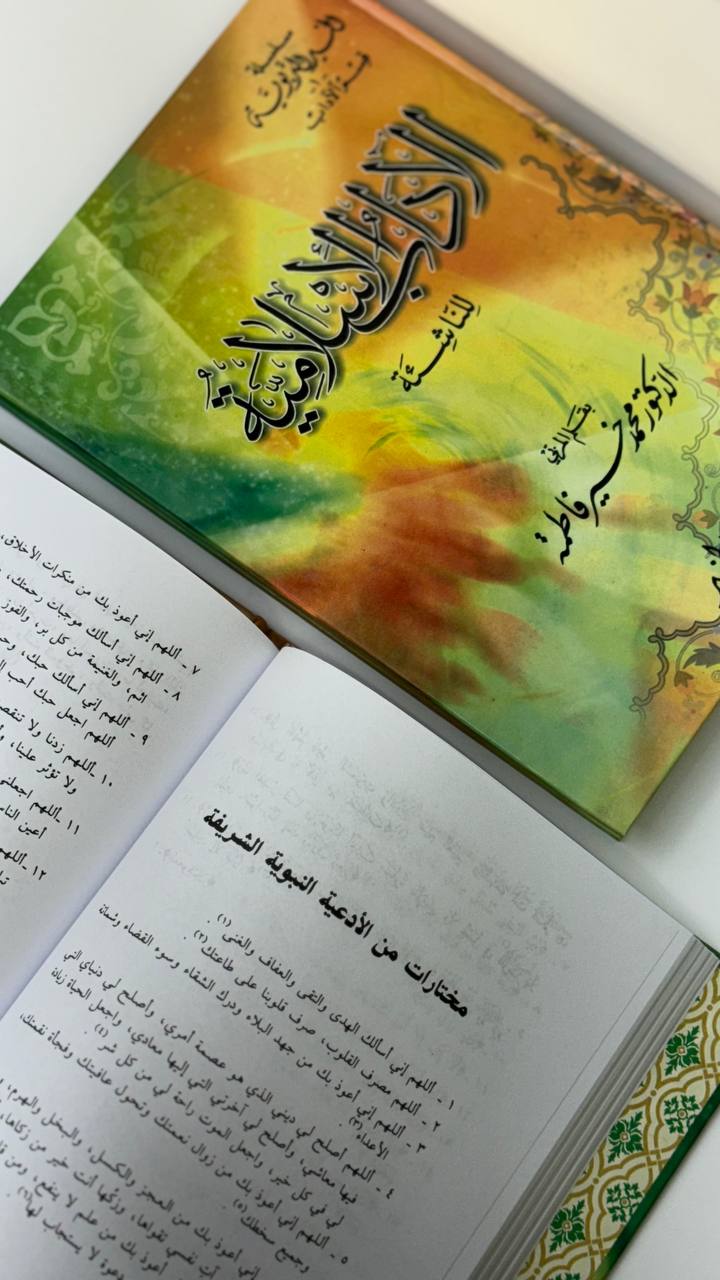 سلسلة
قيم الآداب
الآدابُ الإسلاميةُ
للنَّاشِئَة
بقلم المربي
الدكتور محمد خير فاطمة
مختارات من الأدعية النبوية الشريفة
١ - اللهم إني أسألك الهدى والتقى والعفاف والغنى (١) .
٢ - اللهم مصرف القلوب، صرف قلوبنا على طاعتك (٢) .
٣ - اللهم إني أعوذ بك من جهد البلاء ودرك الشقاء وسوء القضاء وشماتة
الأعداء (٣) .
٤ - اللهم أصلح لي ديني الذي هو عصمة أمري، وأصلح لي دنياي التي
فيها معاشي، وأصلح لي آخرتي التي إليها معادي، واجعل الحياة زيادة
لي في كل خير، واجعل الموت راحة لي من كل شر (٤) .
٥ - اللهم إني أعوذ بك من زوال نعمتك وتحول عافيتك وفجأة نقمتك،
وجميع سخطك (٥) .
إني أعوذ بك من العجز والكسل، والبخل والهرم،
آت نفسي تقواها، وزكها أنت خير من زكاها،
أعوذ بك من علم لا ينفع، ومن
دعوة لا يستجاب لها (٦) .
٧ - اللهم إني أعوذ بك من منكرات الأخلاق،
٨ - اللهم إني أسألك موجبات رحمتك،
اثم، والغنيمة من كل بر، والفوز
٩ - اللهم إني أسألك حبك،
اللهم اجعل حبك أحب
١٠ - اللهم زدنا ولا تنقص
ولا تؤثر علينا،
١١ - اللهم اجعلني
أعين
١٢ - اللهم